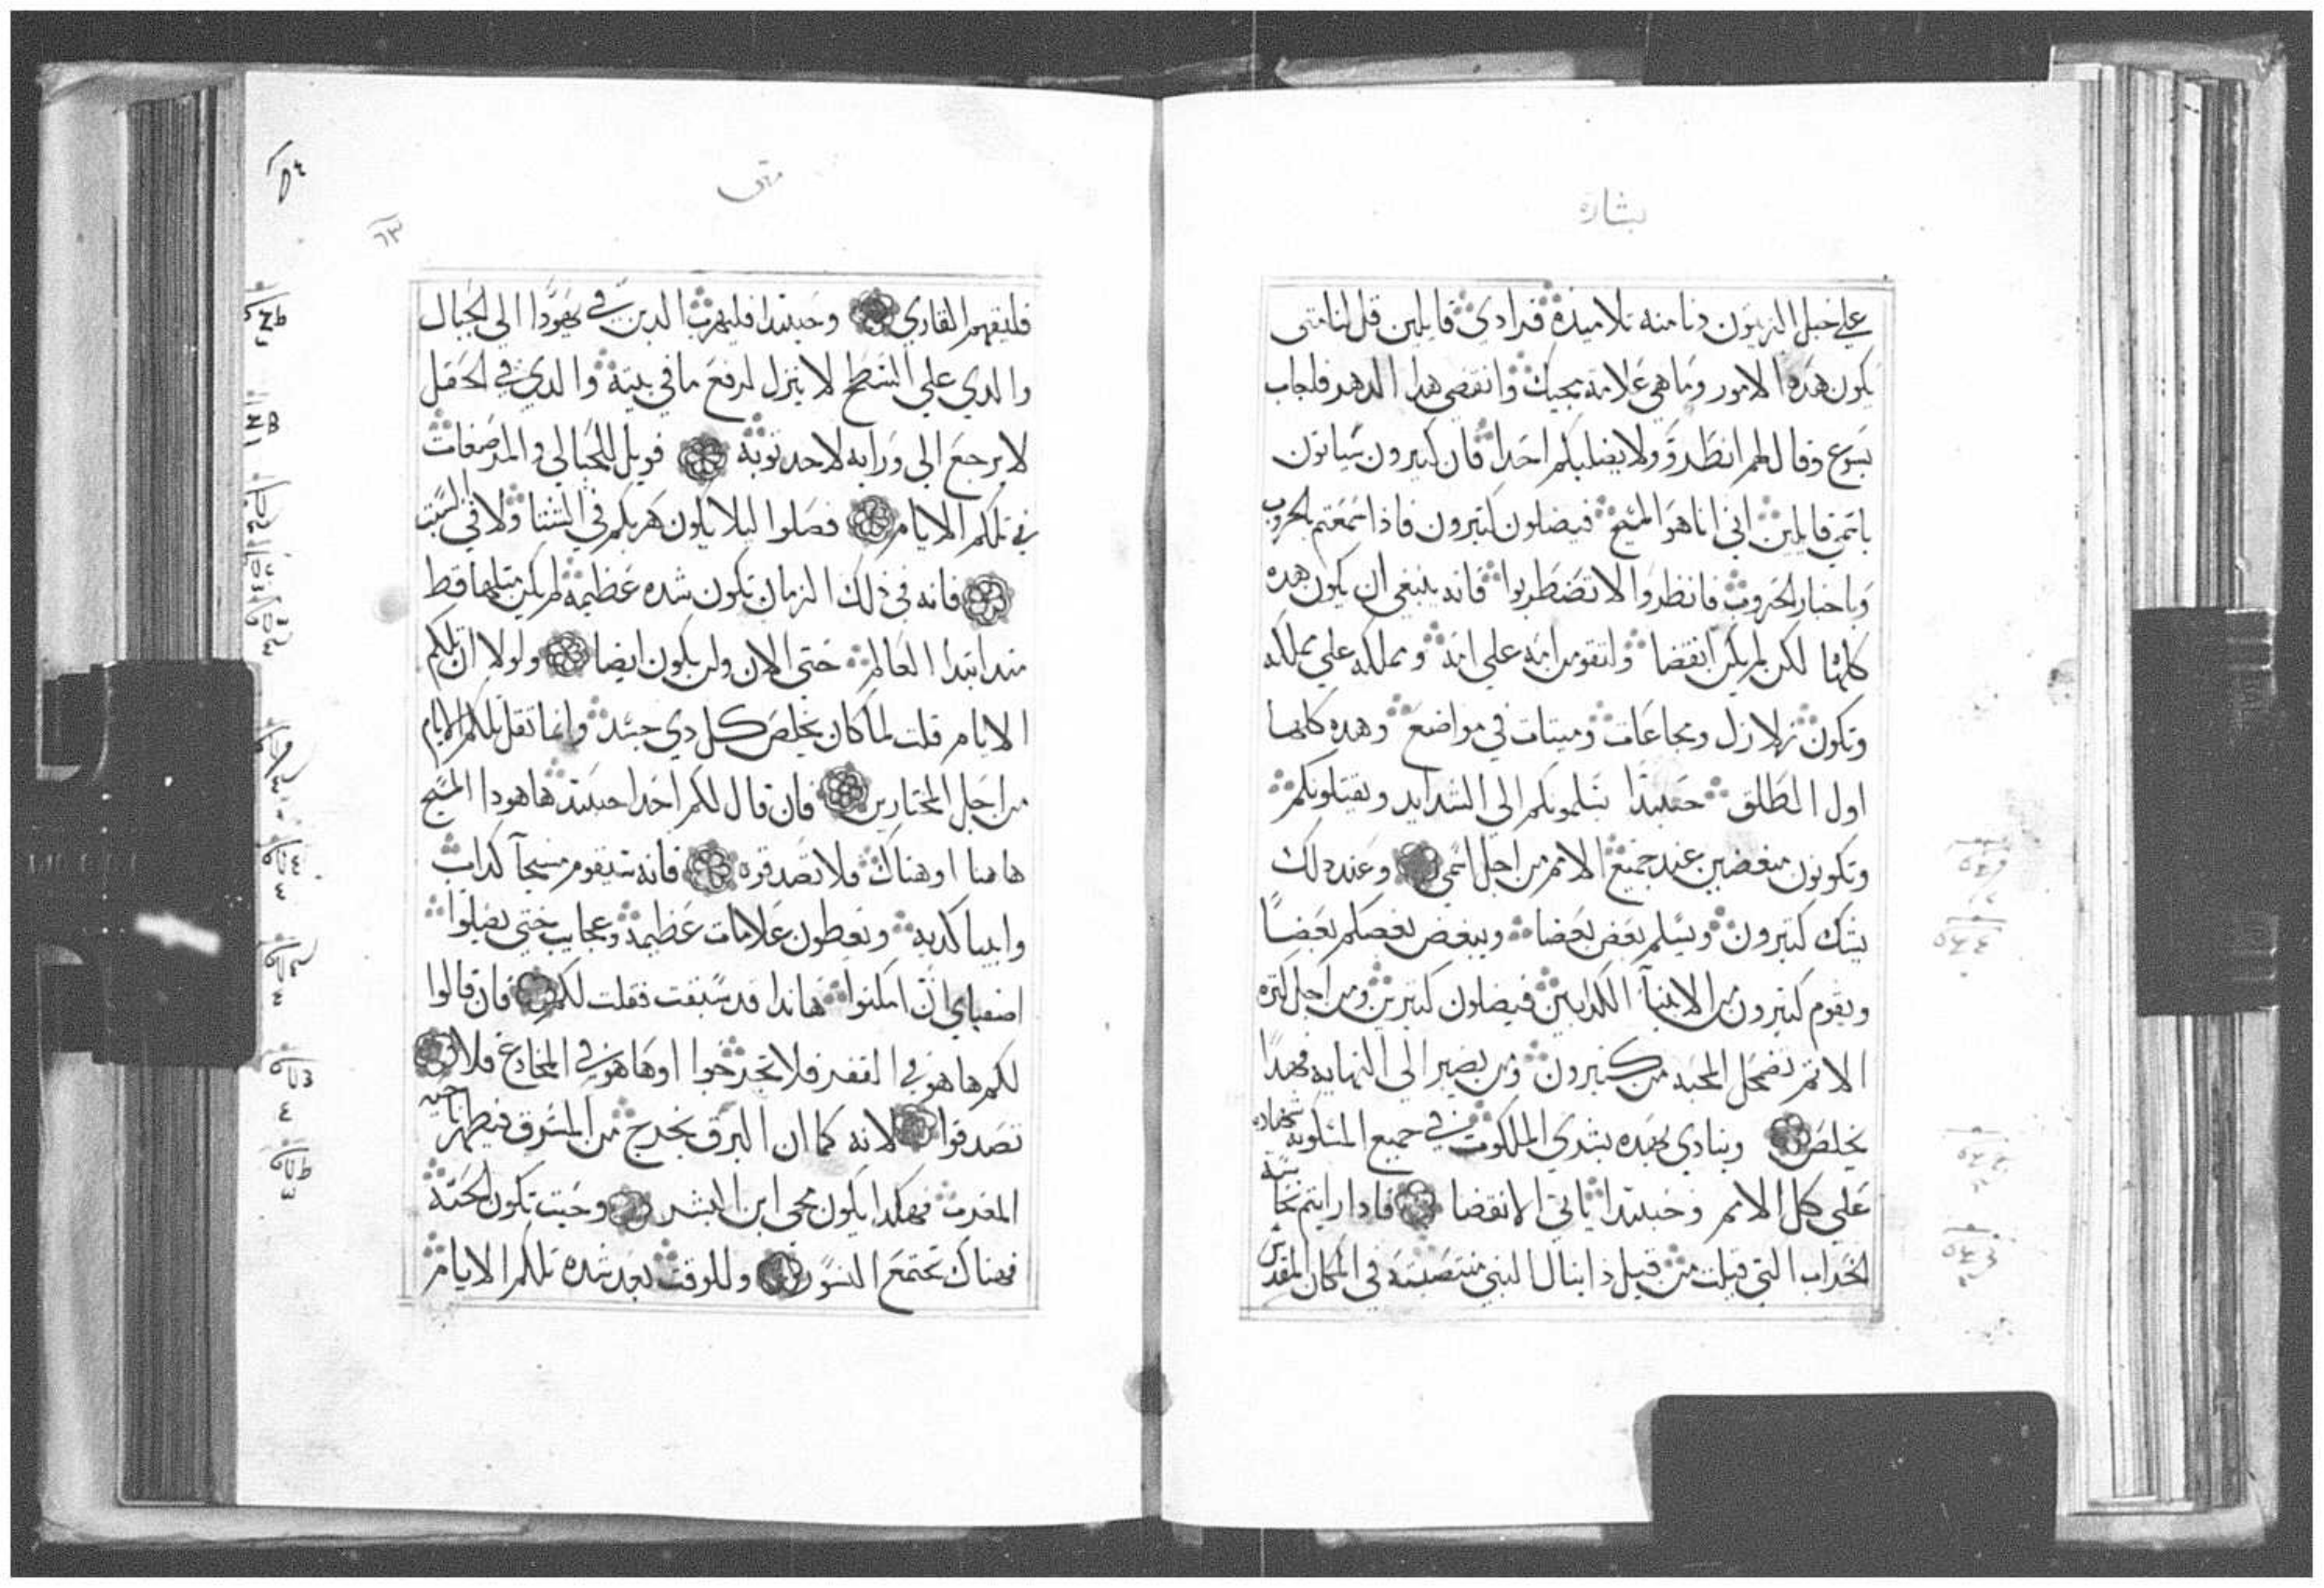 بشاره
على جبل الزيتون دنا منه تلاميده فرادى قايلين قل لنا متى
يكون هده الامور وما هي علامة مجيك وانقضى هدا الدهر فاجاب
يسوع وقال لهم انظروا ولا يضلنكم احدا فان كتيرون سياتون
باسمي قايلين اني انا هو المسيح فيضلون كتيرون فاذا سمعتم الحروب
وباخبار الحروب فانظروا لا تضطربوا فانه ينبغي ان يكون هده
كلها لكن لم يكن انقضا ولتقوم امة على امة ومملكه على مملكه
وتكون زلازل ومجاعات وميتات في مواضع وهده كلها
اول الطلق حينيدا يسلمونكم الى الشدايد ويقتلونكم
وتكونون مبغضين عند جميع الامم من اجل اسمي وعند دلك
يشك كتيرون ويسلم بعض بعضا ويبغض بعضكم بعضًا
ويقوم كتيرون من الانبيآ الكدابين فيضلون كتيرين ومن اجل كتره
الاتم تضمحل المحبه من كتيرون ومن يصبر الى النهايه فهدا
يخلص وينادي بهده بشرى الملكوت في جميع المسكونه شهاده
على كل الامم وحينيدا ياتي الانقضا فادا رايتم نجاسة
الخراب التي قيلت من قبل دانيال النبي منتصبة في المكان المقدس
متى
٦٣
فليفهم القاري وحينيدا فليهرب الدين في يهودا الى الجبال
والدي على السطح لا ينزل لرفع ما في بيته والدي في الحقل
لا يرجع الى ورايه لاخد توبه فويل للحبالى والمرضعات
في تلكم الايام فصلوا ليلا يكون هربكم في الشتا ولا في السبت
فانه في ذلك الزمان تكون شده عظيمه لم يكن متلها قط
مند ابتدا العالم حتى الان ولن يكون ايضا ولولا ان تلكم
الايام قلت لما كان يخلص كل دي جسد وانما تقل تلكم الايام
من اجل المختارين فان قال لكم احدا حينيد هاهودا المسيح
هاهنا او هناك فلا تصدقوه فانه سيقوم مسيحآ كداب
وانبيا كدبه ويعطون علامات عظيمه وعجايب حتى يضلوا
اصفياي ان امكنوا هاندا قد سبقت فقلت لكم فان قالوا
لكم ها هو في القفر فلا تخرجوا او ها هو في المخادع فلا
تصدقوا لانه كما ان البرق يخرج من المشرق فيظهر ناحيه
المغرب فهكدا يكون مجي ابن البشر وحيت تكون الجتة
فهناك تجتمع النسور وللوقت بعد شده تلكم الايام